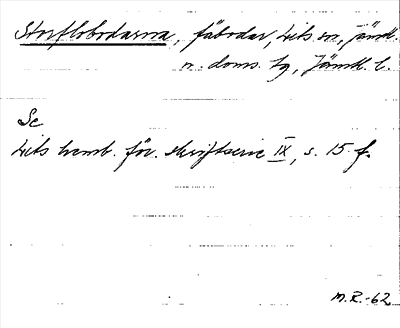 Storflobodarna, fäbodar, Lits sn, Jämtl.
n. doms. tg, Jämtl. l.
Se
Lits hemb. för. skriftserie IX, s. 15 f.
M.R.-62